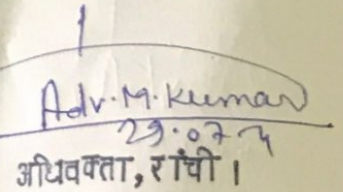 Adv. M. Kumar
29.07
अधिवक्ता, रांची ।